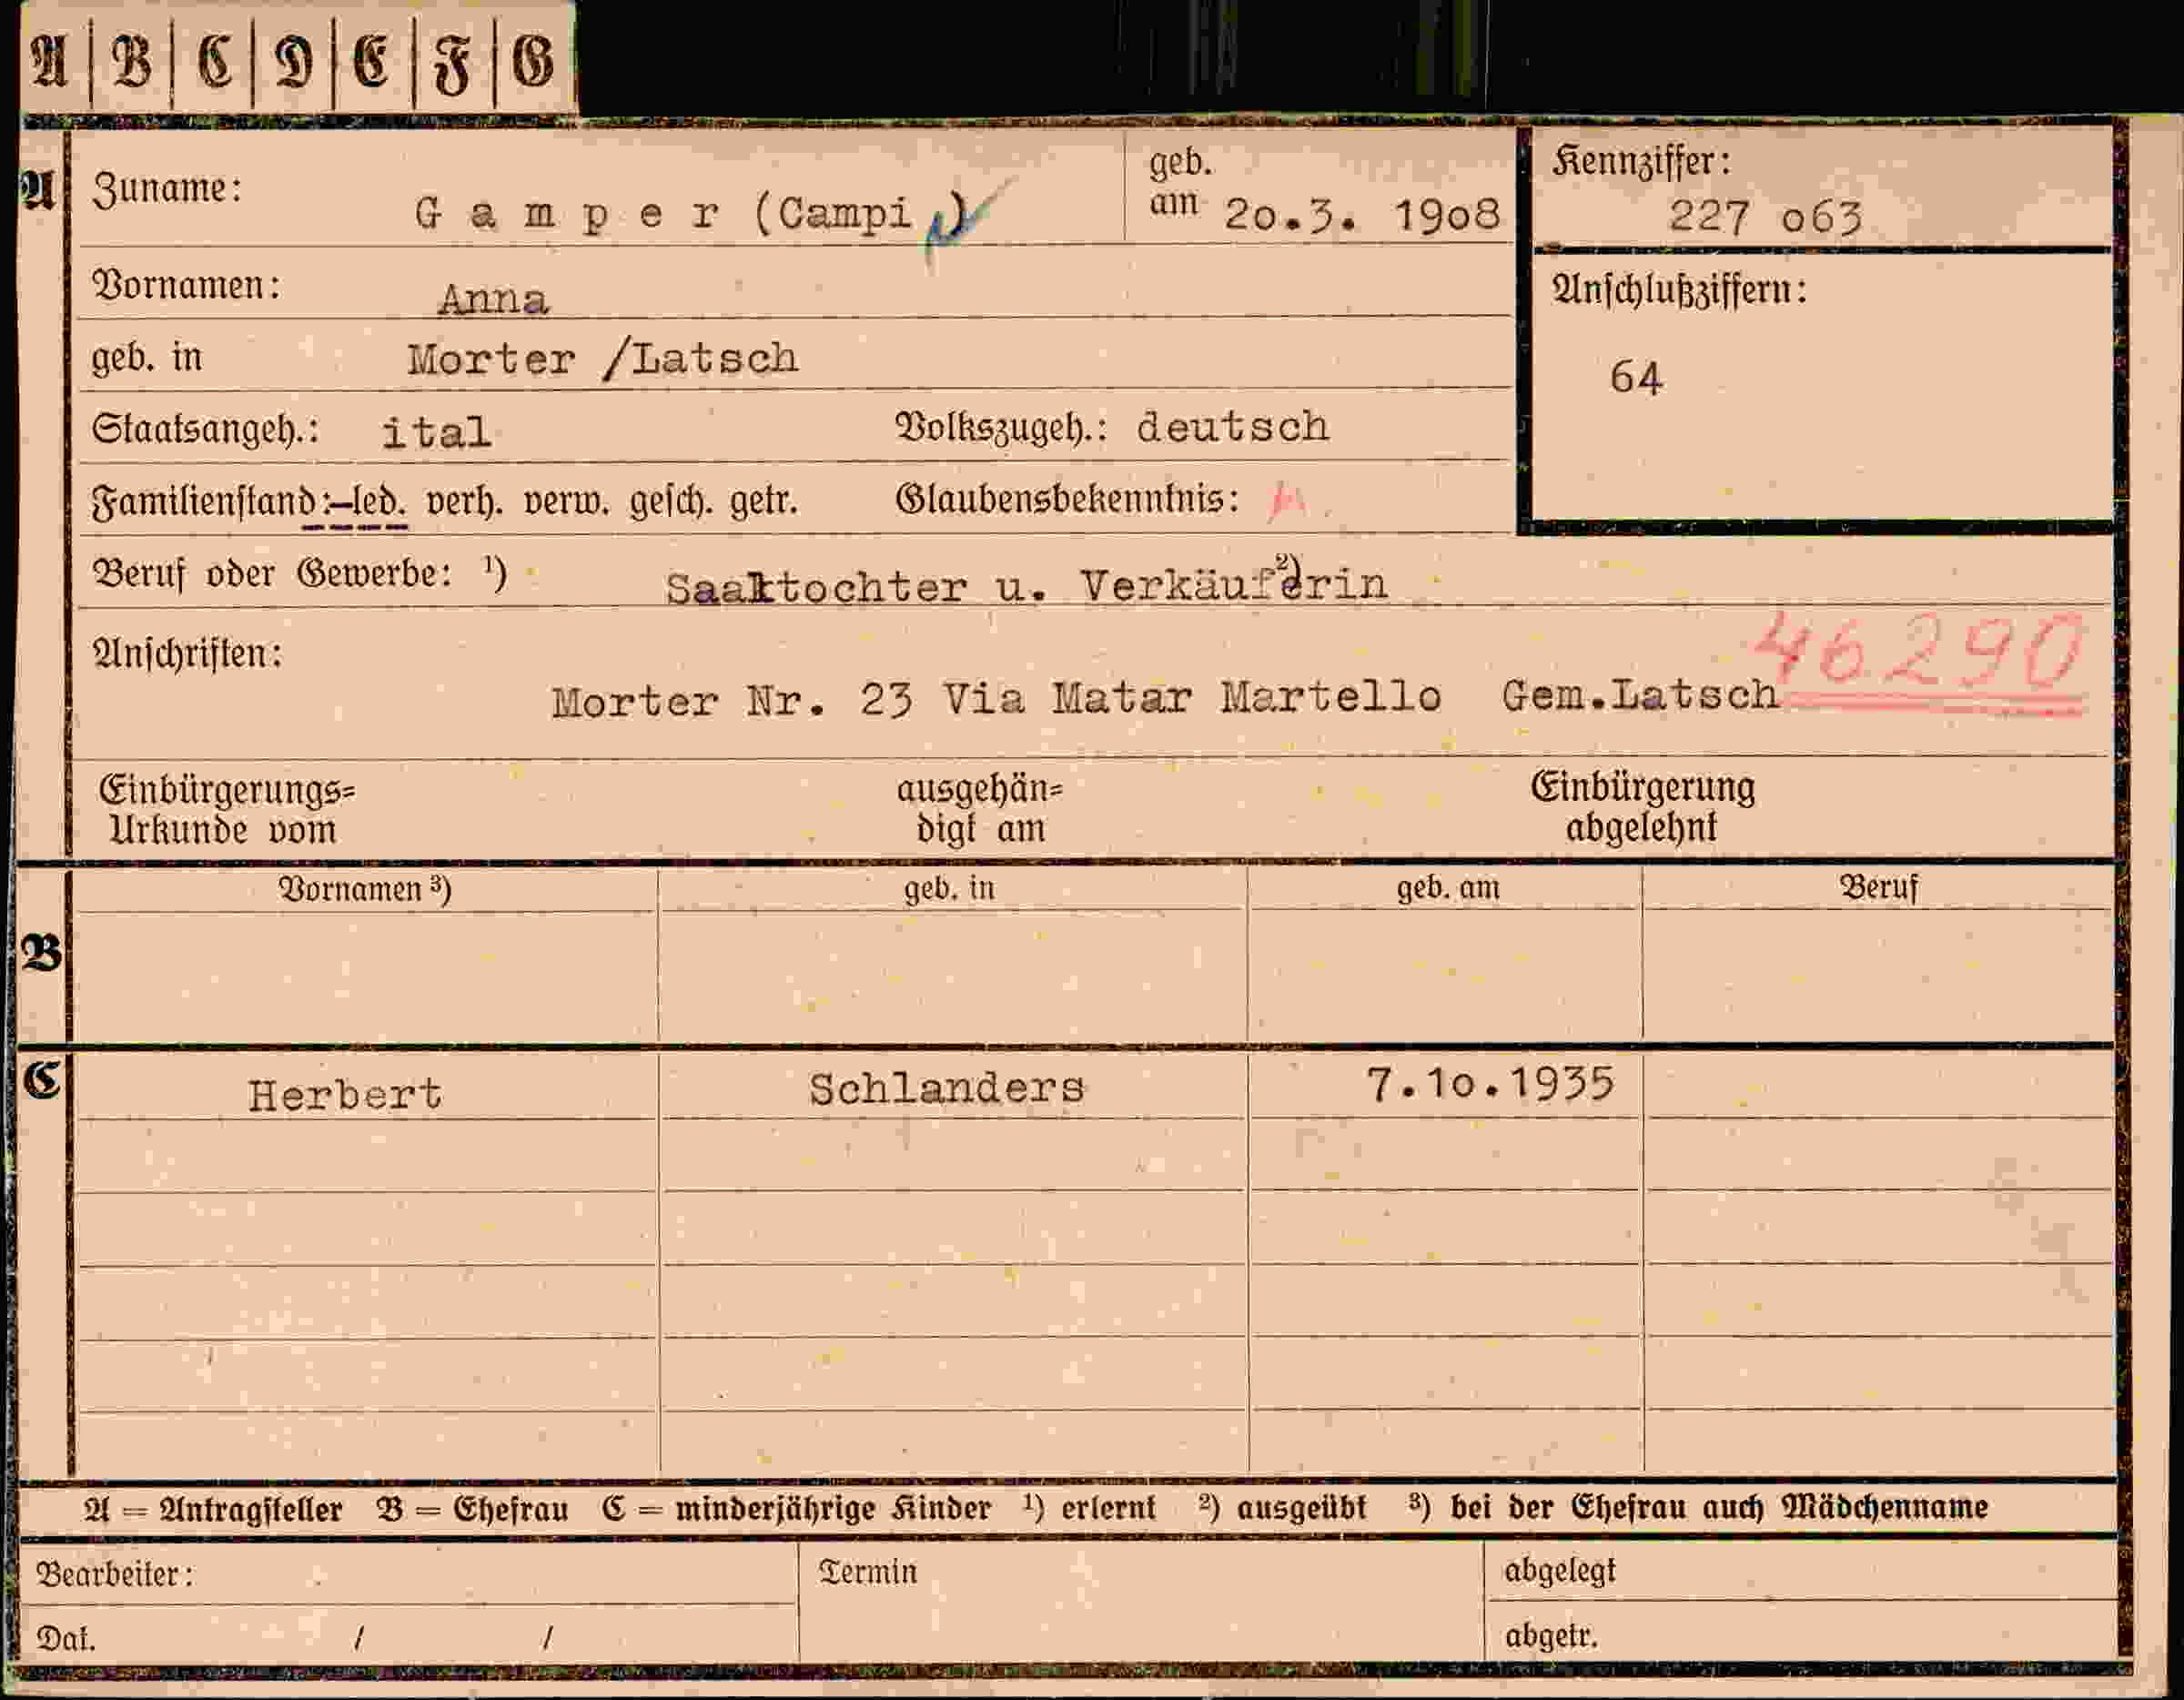 A B C D E F G
A Zuname: Gamper (Campi ) geb. am 20.3. 1908 Kennziffer: 227 063
Vornamen: Anna Anschlußziffern:
geb. in Morter /Latsch 64
Staatsangeh.: ital Volkszugeh.: deutsch
Familienstand: led. verh. verw. gesch. getr. Glaubensbekenntnis:
Beruf oder Gewerbe: ¹) Saaltochter u. Verkäuferin ²)
Anschriften: 46290
Morter Nr. 23 Via Matar Martello Gem.Latsch
Einbürgerungs= ausgehän= Einbürgerung
Urkunde vom digt am abgelehnt
B Vornamen ³) geb. in geb. am Beruf
C Herbert Schlanders 7.10.1935
A = Antragsteller B = Ehefrau C = minderjährige Kinder ¹) erlernt ²) ausgeübt ³) bei der Ehefrau auch Mädchenname
Bearbeiter: Termin abgelegt
Dat. / / abgetr.